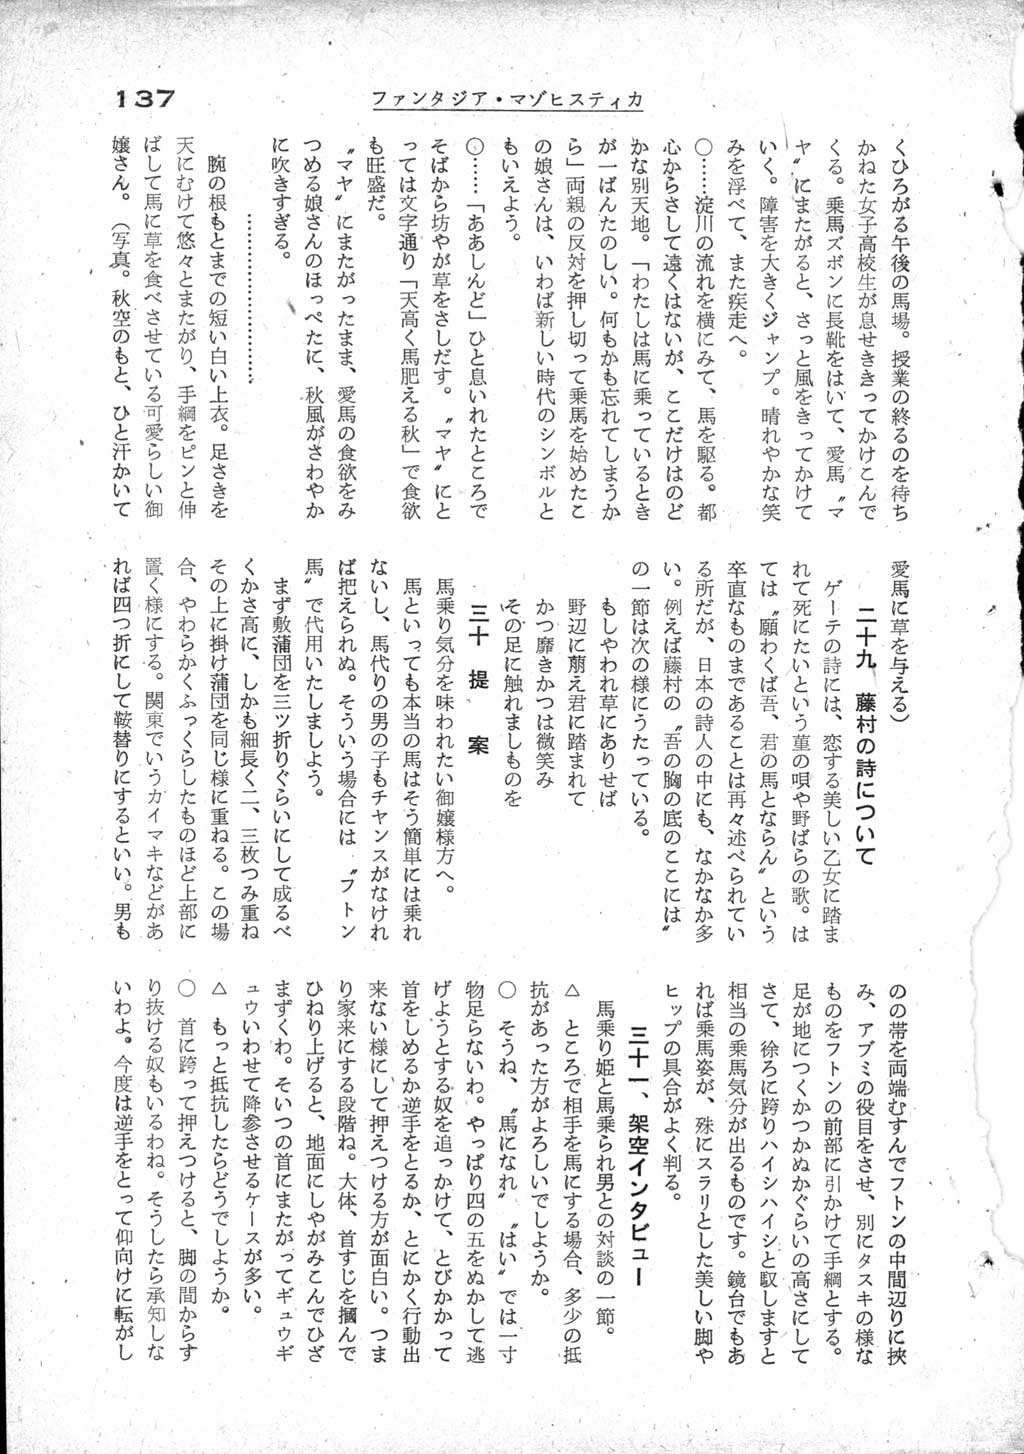 137
ファンタジア・マゾヒスティカ
くひろがる午後の馬場。授業の終るのを待ち
かねた女子高校生が息せききってかけこんで
くる。乗馬ズボンに長靴をはいて、愛馬〝マ
ヤ〟にまたがると、さっと風をきってかけて
いく。障害を大きくジャンプ。晴れやかな笑
みを浮べて、また疾走へ。
○……淀川の流れを横にみて、馬を駆る。都
心からさして遠くはないが、ここだけはのど
かな別天地。「わたしは馬に乗っているとき
が一ばんたのしい。何もかも忘れてしまうか
ら」両親の反対を押し切って乗馬を始めたこ
の娘さんは、いわば新しい時代のシンボルと
もいえよう。
○……「ああしんど」ひと息いれたところで
そばから坊やが草をさしだす。〝マヤ〟にと
っては文字通り「天高く馬肥える秋」で食欲
も旺盛だ。
〝マヤ〟にまたがったまま、愛馬の食欲をみ
つめる娘さんのほっぺたに、秋風がさわやか
に吹きすぎる。
……………………………
腕の根もとまでの短い白い上衣。足さきを
天にむけて悠々とまたがり、手綱をピンと伸
ばして馬に草を食べさせている可愛らしい御
嬢さん。（写真。秋空のもと、ひと汗かいて
愛馬に草を与える）
二十九　藤村の詩について
ゲーテの詩には、恋する美しい乙女に踏ま
れて死にたいという菫の唄や野ばらの歌。は
ては〝願わくば吾、君の馬とならん〟という
卒直なものまであることは再々述べられてい
る所だが、日本の詩人の中にも、なかなか多
い。例えば藤村の〝吾の胸の底のここには〟
の一節は次の様にうたっている。
もしやわれ草にありせば
野辺に萠え君に踏まれて
かつ靡きかつは微笑み
その足に触れましものを
三十　提　案
馬乗り気分を味わわれたい御嬢様方へ。
馬といっても本当の馬はそう簡単には乗れ
ないし、馬代りの男の子もチャンスがなけれ
ば把えられぬ。そういう場合には〝フトン
馬〟で代用いたしましよう。
まず敷蒲団を三ツ折りぐらいにして成るべ
くかさ高に、しかも細長く二、三枚つみ重ね
その上に掛け蒲団を同じ様に重ねる。この場
合、やわらかくふっくらしたものほど上部に
置く様にする。関東でいうガイマキなどがあ
れば四つ折にして鞍替りにするといい。男も
のの帯を両端むすんでフトンの中間辺りに挾
み、アブミの役目をさせ、別にタスキの様な
ものをフトンの前部に引かけて手綱とする。
足が地につくかつかぬかぐらいの高さにして
さて、徐ろに跨りハイシハイシと馭しますと
相当の乗馬気分が出るものです。鏡台でもあ
れば乗馬姿が、殊にスラリとした美しい脚や
ヒップの具合がよく判る。
三十一、架空インタビュー
馬乗り姫と馬乗られ男との対談の一節。
△　ところで相手を馬にする場合、多少の抵
抗があった方がよろしいでしようか。
○　そうね、〝馬になれ〟〝はい〟では一寸
物足らないわ。やっぱり四の五をぬかして逃
げようとする奴を追っかけて、とびかかって
首をしめるか逆手をとるか、とにかく行動出
来ない様にして押えつける方が面白い。つま
り家来にする段階ね。大体、首すじを摑んで
ひねり上げると、地面にしやがみこんでひざ
まずくわ。そいつの首にまたがってギュウギ
ュウいわせて降参させるケースが多い。
△　もっと抵抗したらどうでしようか。
○　首に跨って押えつけると、脚の間からす
り抜ける奴もいるわね。そうしたら承知しな
いわよ。今度は逆手をとって仰向けに転がし